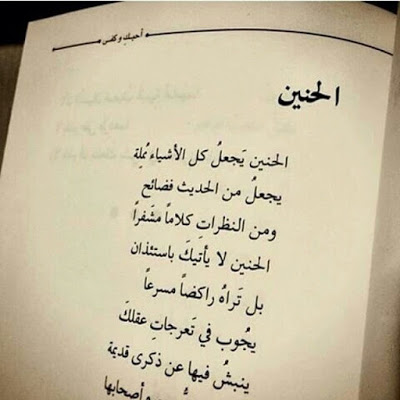 أحبك وكفى
الحنين
الحنين يَجعلُ كل الأشياء مُملة
يجعلُ من الحديث فضائح
ومن النظراتِ كلاماً مشفراً
الحنين لا يأتيكَ باستئذان
بل تَراهُ راكضاً مسرعاً
يجُوب في تَعرجاتِ عقلكَ
ينبشُ فيها عن ذكرى قديمة
وأصحابها